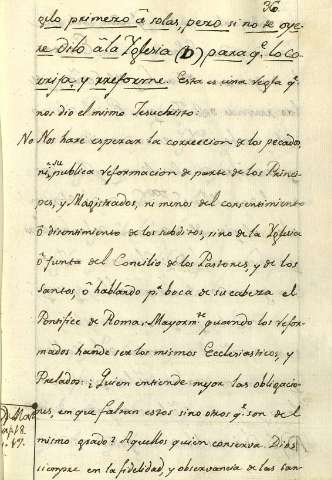 36
gelo primero â solas, pero si no te oye
re dilo â la Yglesia (D) para q.e lo co
rrija, y rreforme. Esta es una regla q.e
nos dio el mismo Jesuchristo:
No Nos hace esperar la correccion de los pecados,
ni su publica reformacion de parte de los Princi
pes, y Magistrados, ni menos del consentimiento
ô disentimiento de los subditos, sino de la Yglesia
ô junta del Concilio de los Pastores, y de los
Santos, ô hablando p.r boca de su cabeza el
Pontifice de Roma, Mayorm.te quando los refor
mados han de ser los mismos Ecclesiasticos, y
Prelados: ¿Quien entiende mejor las obligacio
nes, en que faltan estos sino otros q.e son de el
mismo grado? Aquellos quien conserva Dios
siempre en la fidelidad, y observancia de las san
D) Math.
cap. 18
v. 17.